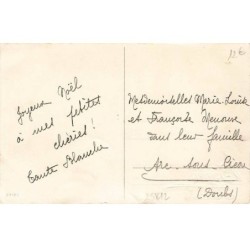 Joyeux Noël
à mes petites
chéries !
Tante Blanche
Mesdemoiselles Marie Louise
et Françoise
dans leur famille
Arc sous Cicon
(Doubs)